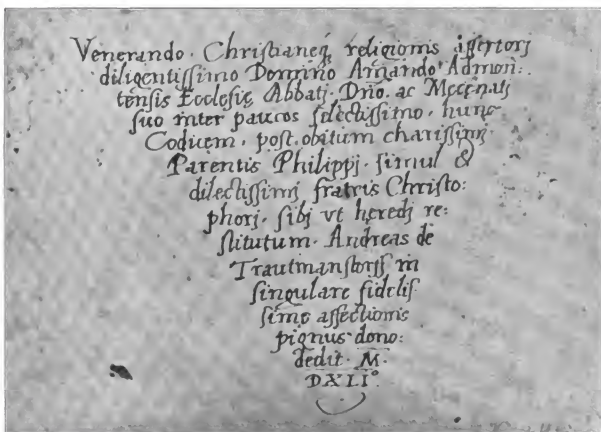 Venerando · Christianeq́ religionis assertorj
diligentissimo Domino Amando Admon:
tensis Ecclesię Abbatj · Dn̄o · ac Mecęnatj
suo inter paucos selectissimo · hunc
Codicem · post · obitum charissimj
Parentis Philippj · simul &
dilectissimj fratris Christo:
phorj · sibj vt hęredj re:
stitutum · Andreas de
Trautmanstorff in
singulare fidelis
simę affectionis
pignus dono:
dedit · M
DXLI°